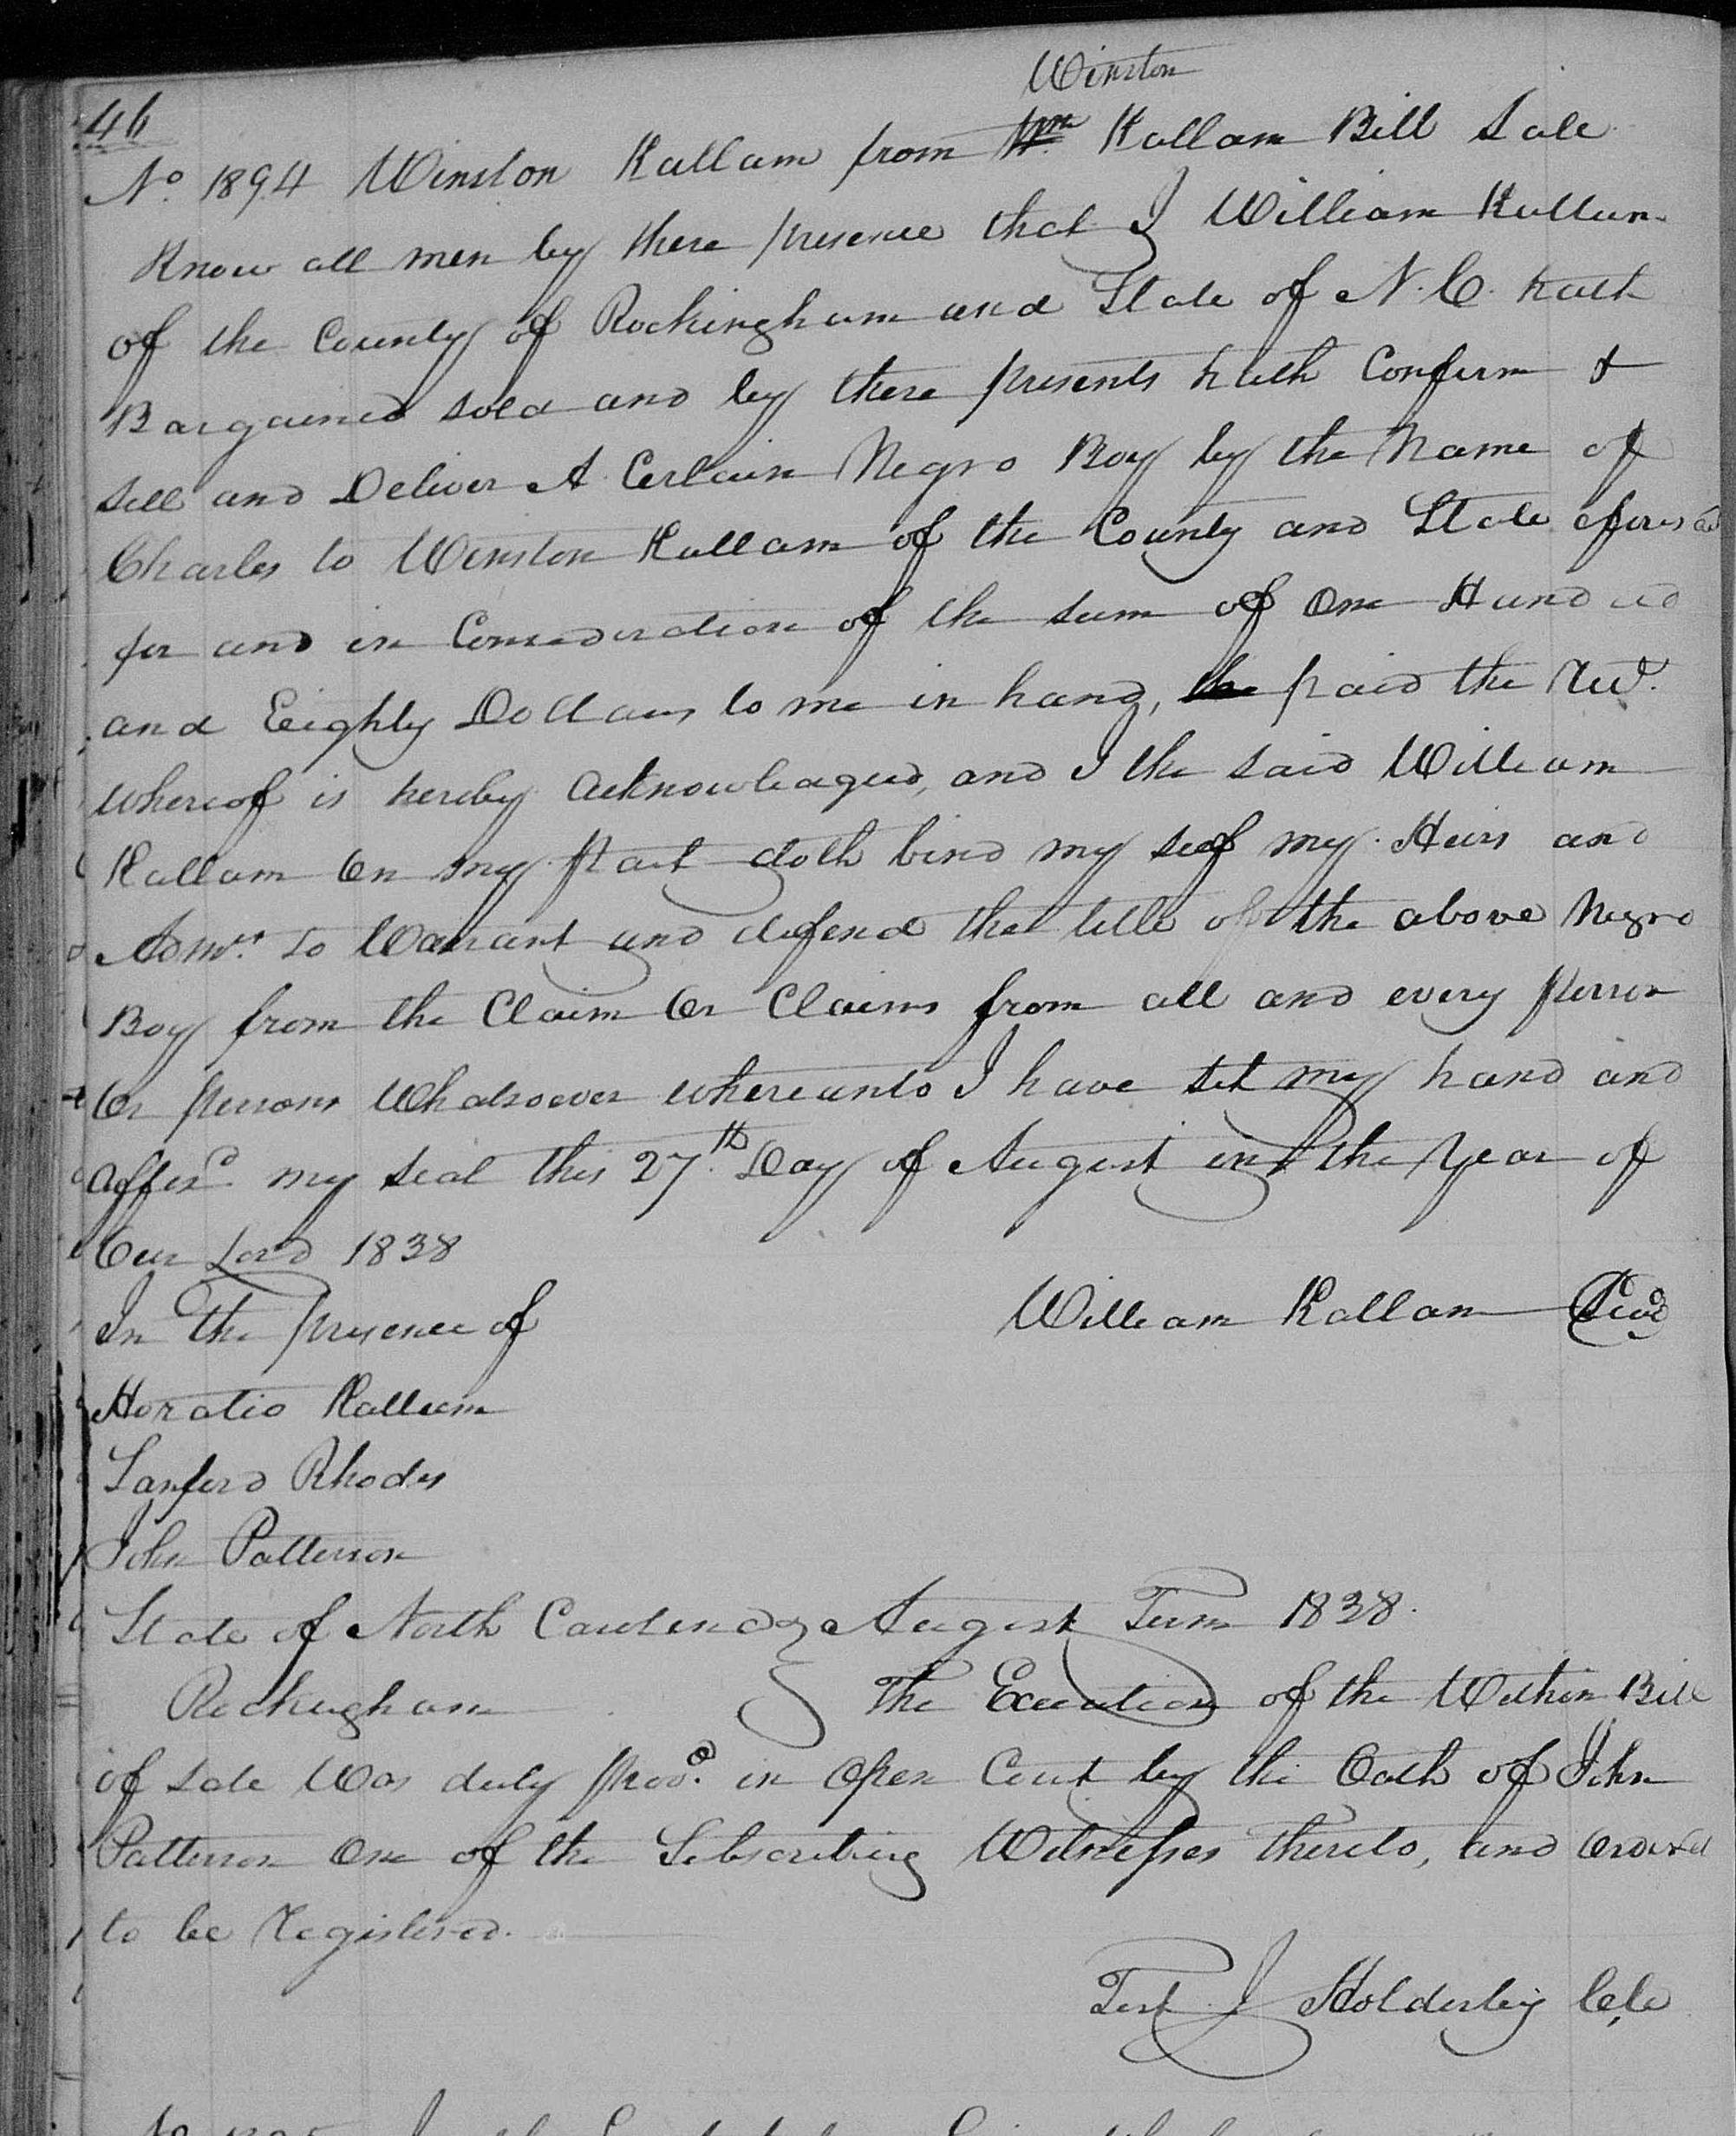 46
Winston
No. 1894 Winston Kallam from Wm. Kallam Bill Sale
Know all men by these presence that I William Kallum
of the County of Rockingham and State of N. C. hath
Bargained sold and by these presents hath Confirm &
sell and Deliver A Certain Negro Boy by the Name of
Charles to Winston Kallam of the County and State aforesd
for and in Consideration of the sum of One Hundred
and Eighty Dollars to me in hand, the paid the Recd.
whereof is hereby acknowledged, and I the said William
Kallam On my part doth bind my self my Heirs and
Admrs. to Warrant and defend the title of the above Negro
Boy from the Claim Or Claims from all and every person
Or persons Whatsoever whereunto I have set my hand and
affixd. my seal this 27.th Day of August in the Year of
Our Lord 1838
In The presence of William Kallam Seal
Horatio Kallum
Sanford Rhodes
John Patterson
State of North Carolina } August Term 1838.
Rockingham } The Execution of the Within Bill
of sale Was duly provd. in Open Court by the Oath of John
Patterson One of the Subscribing Witnesses thereto, and Ordered
to be Registered.
Test J Holderby C,C